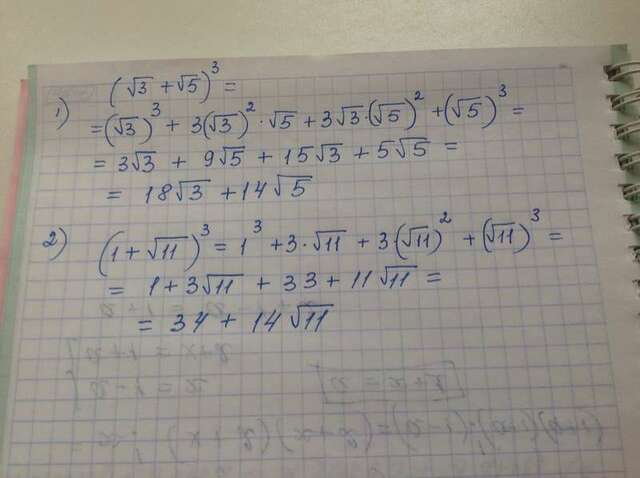 1) (√3 + √5)³ =
= (√3)³ + 3(√3)² · √5 + 3√3·(√5)² + (√5)³ =
= 3√3 + 9√5 + 15√3 + 5√5 =
= 18√3 + 14√5
2) (1 + √11)³ = 1³ + 3·√11 + 3(√11)² + (√11)³ =
= 1 + 3√11 + 33 + 11√11 =
= 34 + 14√11